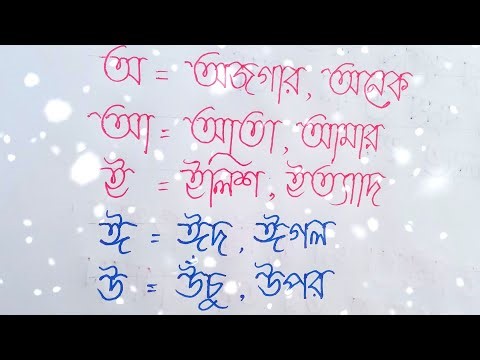 অ = অজগার, অনেক
আ = আতা, আমার
ই = ইলিশ, ইত্যাদ
ঈ = ঈদ, ঈগল
উ = উঁচু, উপর